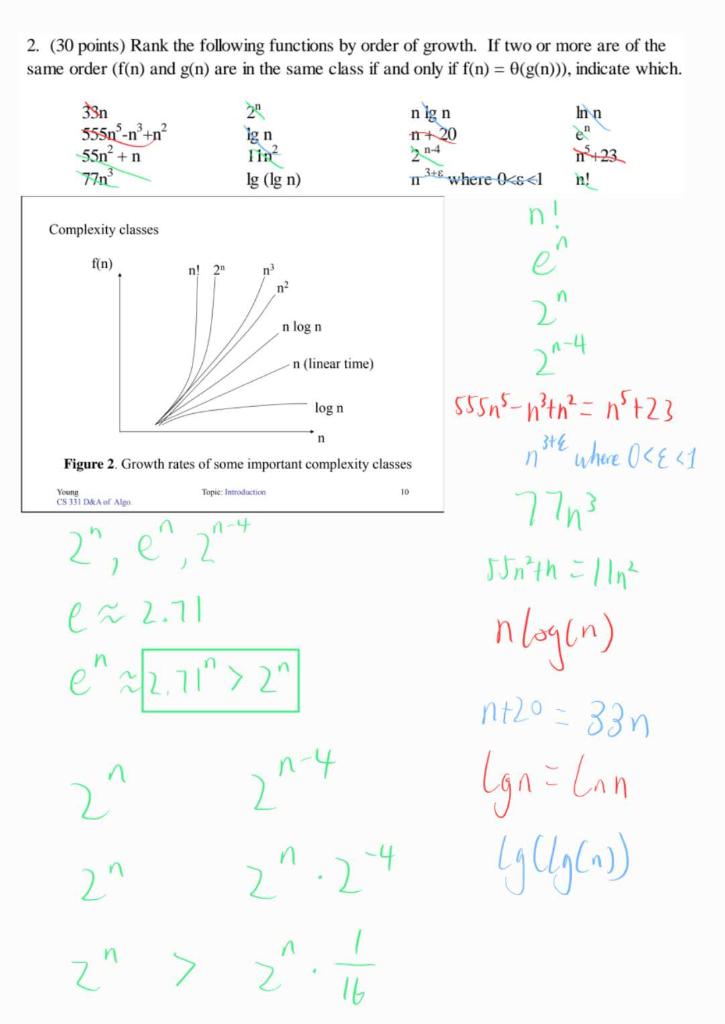 2. (30 points) Rank the following functions by order of growth. If two or more are of the
same order (f(n) and g(n) are in the same class if and only if f(n) = θ(g(n))), indicate which.
33n 2ⁿ n lg n ln n
555n⁵-n³+n² lg n n + 20 eⁿ
55n² + n 11n² 2ⁿ⁻⁴ n⁵+23
77n³ lg (lg n) n³⁺ᵋ where 0<ε<1 n!
Complexity classes
f(n)
n! 2ⁿ n³
n²
n log n
n (linear time)
log n
n
Figure 2. Growth rates of some important complexity classes
Young Topic: Introduction 10
CS 331 D&A of Algo.
n!
eⁿ
2ⁿ
2ⁿ⁻⁴
555n⁵-n³+n² = n⁵+23
n³⁺ᵋ where 0<ε<1
77n³
55n²+n = 11n²
nlog(n)
n+20 = 33n
lgn = lnn
lg(lg(n))
2ⁿ, eⁿ, 2ⁿ⁻⁴
e ≈ 2.71
eⁿ ≈ 2.71ⁿ > 2ⁿ
2ⁿ 2ⁿ⁻⁴
2ⁿ 2ⁿ · 2⁻⁴
2ⁿ > 2ⁿ · 1/16